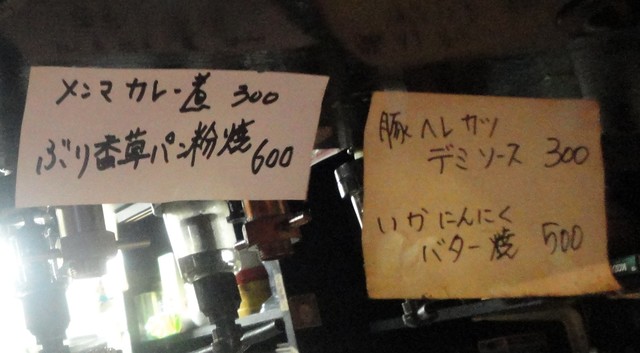 メンマカレー煮 300
ぶり香草パン粉焼 600
豚ヘレカツ
デミソース 300
いかにんにく
バター焼 500